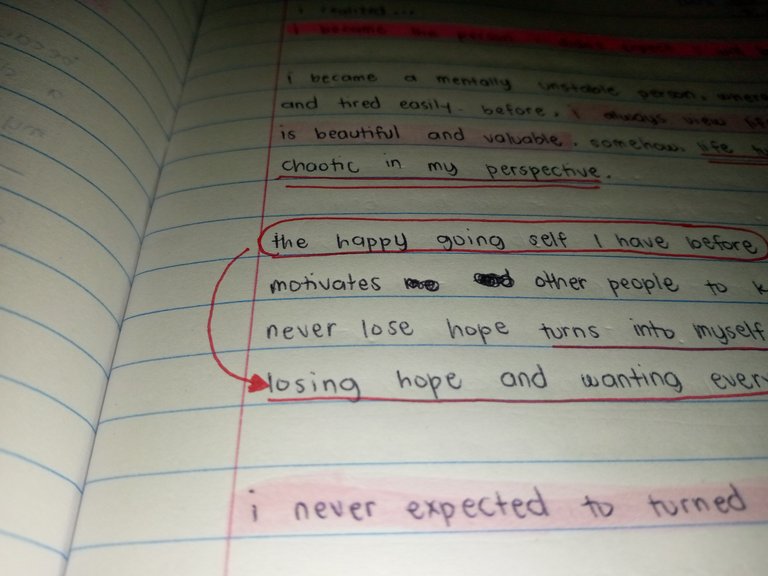 i realized...
i became a mentally unstable person, where
and tired easily. before, i always view life
is beautiful and valuable. somehow, life
chaotic in my perspective.
the happy going self I have before
motivates other people to k
never lose hope turns into myself
losing hope and wanting ever
i never expected to turned